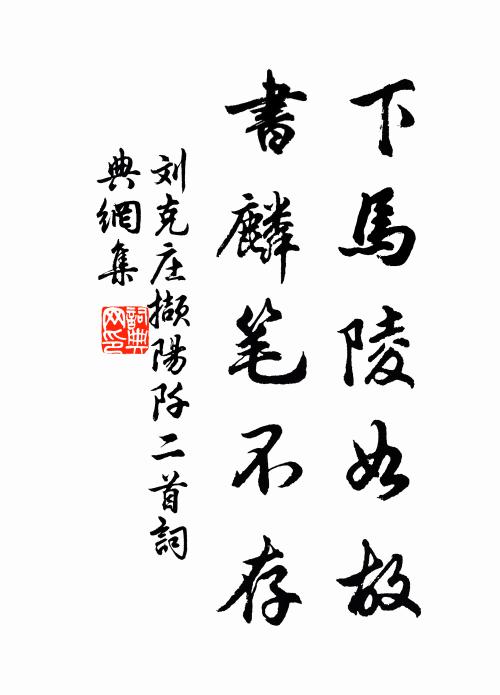 下馬陵如故
書麟笔不存
刘克庄撷陽阡二首詞
典網集
詞典网印